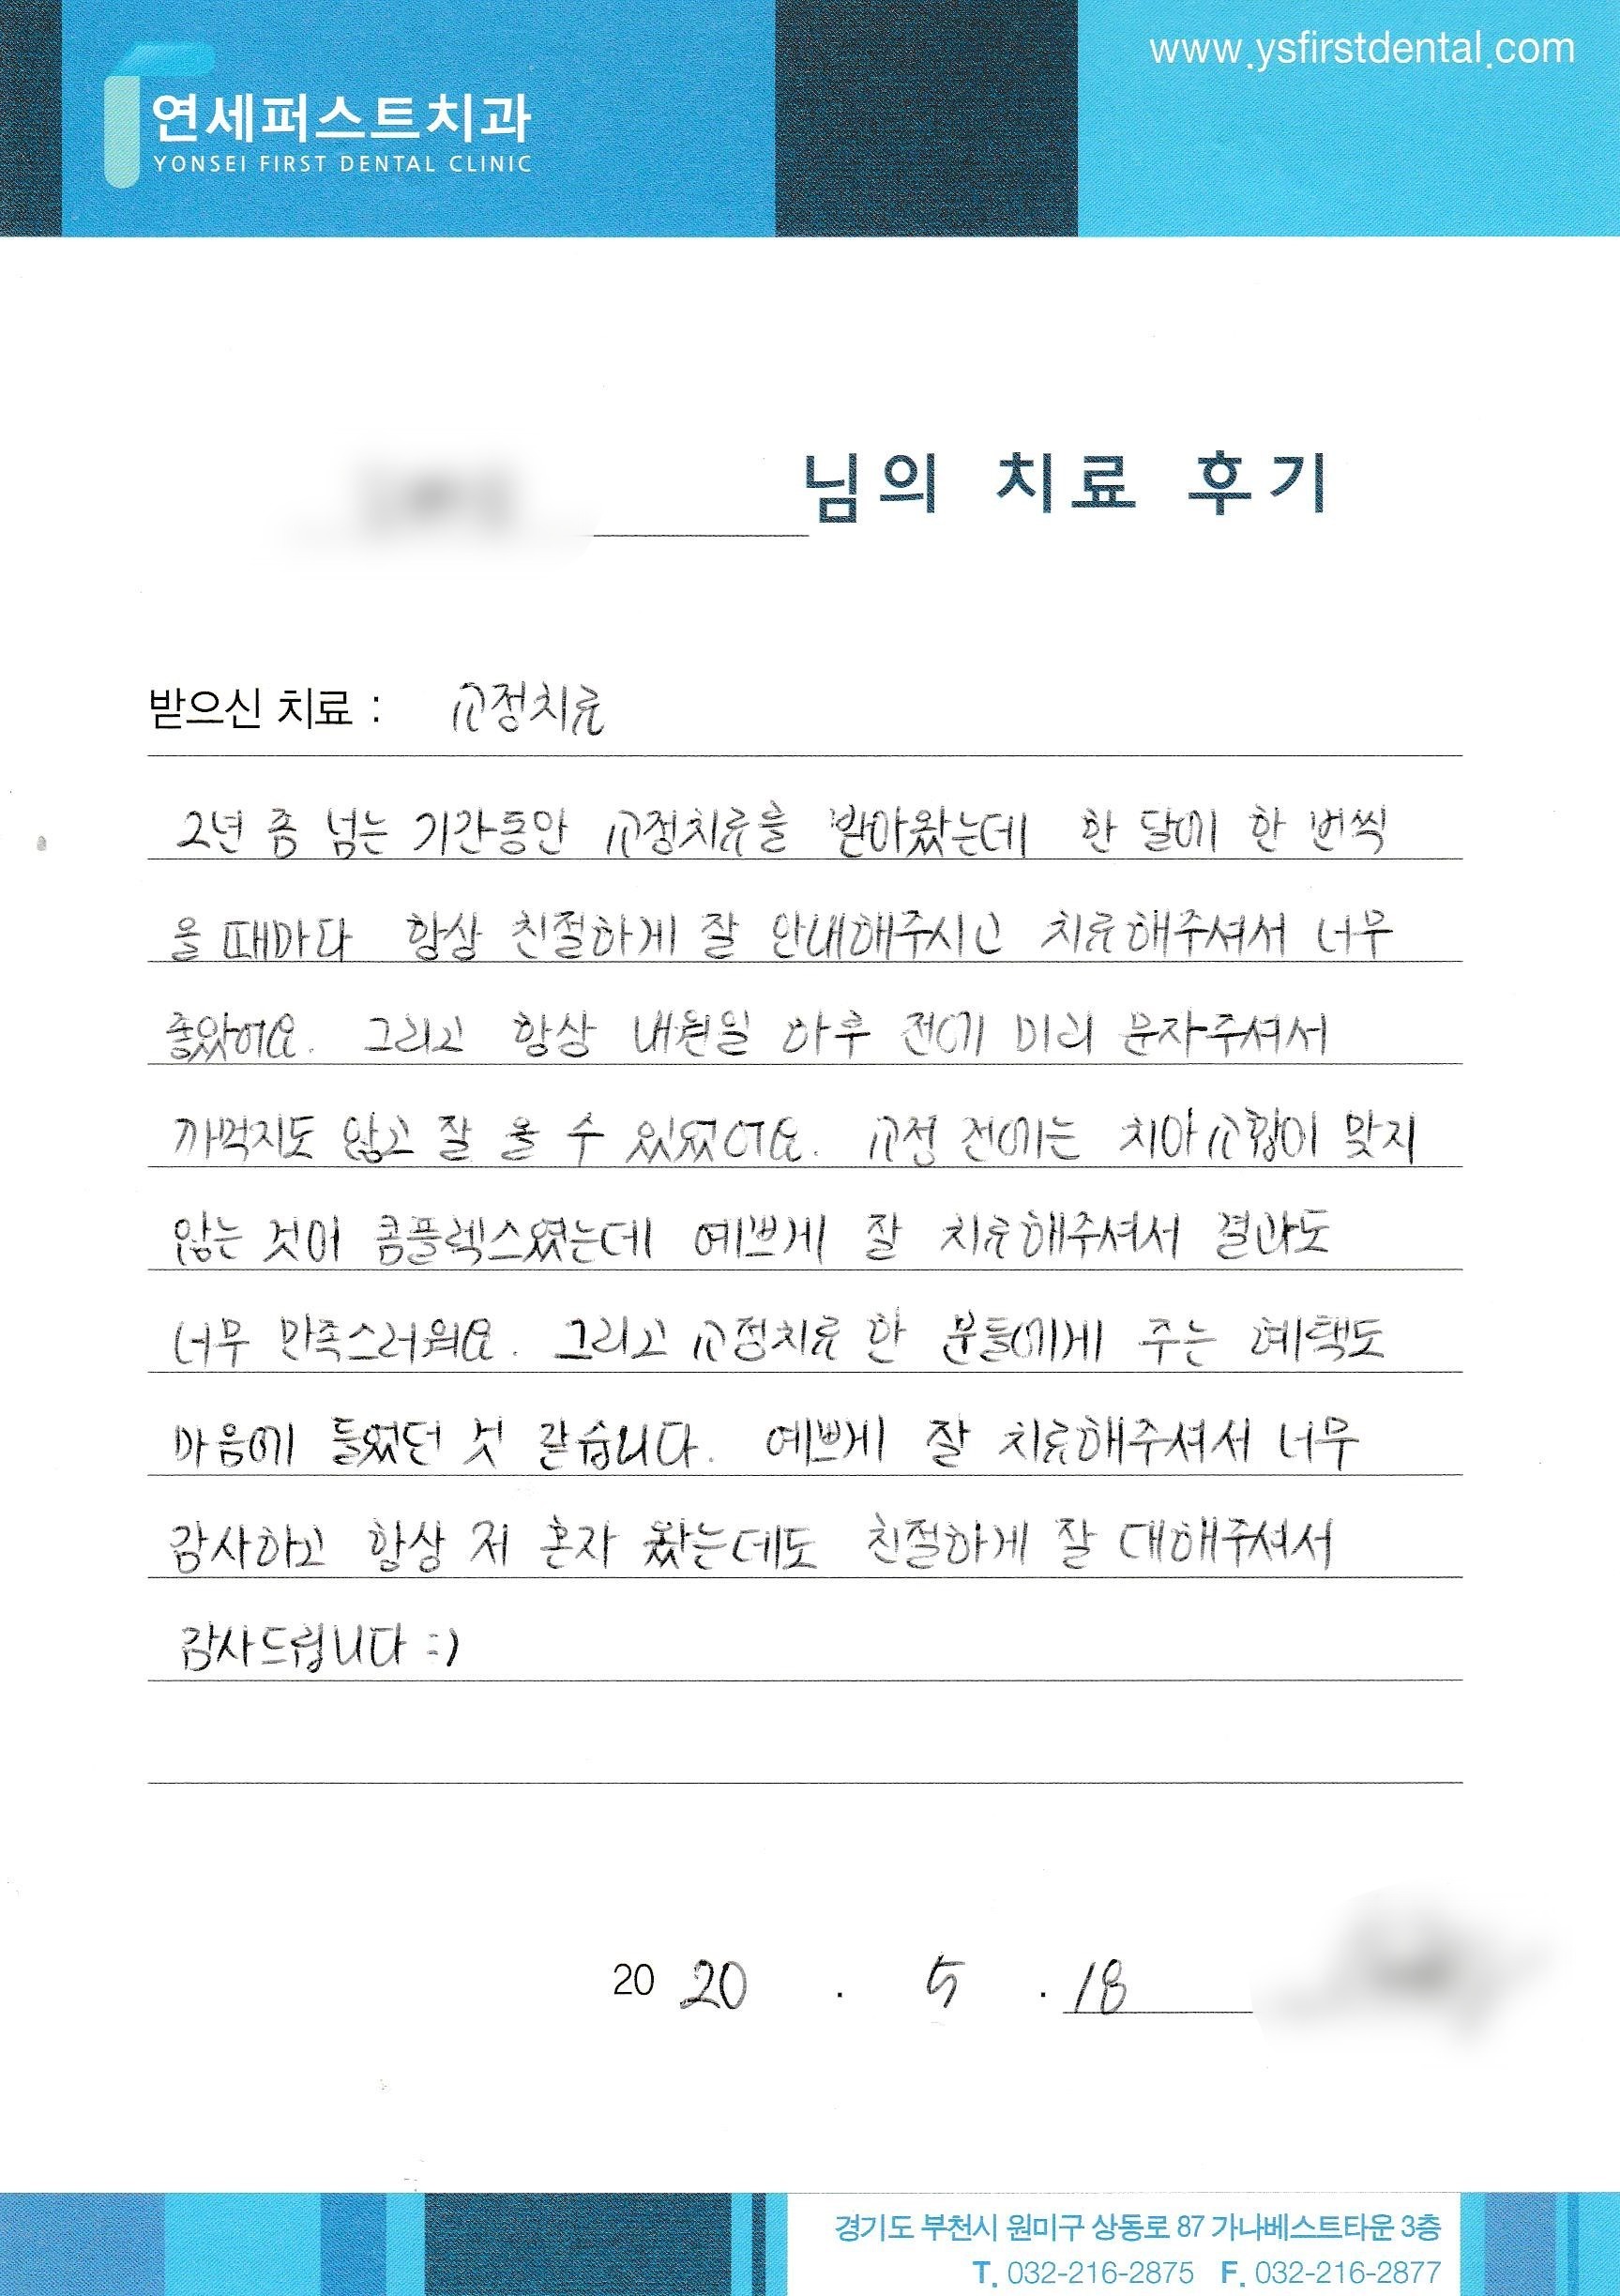 www.ysfirstdental.com
연세퍼스트치과
YONSEI FIRST DENTAL CLINIC
님의 치료 후기
받으신 치료 : 교정치료
2년 좀 넘는 기간동안 교정치료를 받아왔는데 한 달에 한 번씩
올 때마다 항상 친절하게 잘 안내해주시고 치료해주셔서 너무
좋았어요. 그리고 항상 내원일 하루 전에 미리 문자주셔서
까먹지도 않고 잘 올 수 있었어요. 교정 전에는 치아교합이 맞지
않는 것이 콤플렉스였는데 예쁘게 잘 치료해주셔서 결과도
너무 만족스러워요. 그리고 교정치료 한 분들에게 주는 혜택도
마음에 들었던 것 같습니다. 예쁘게 잘 치료해주셔서 너무
감사하고 항상 저 혼자 왔는데도 친절하게 잘 대해주셔서
감사드립니다 :)
2020 . 5 . 18
경기도 부천시 원미구 상동로 87 가나베스트타운 3층
T. 032-216-2875 F. 032-216-2877